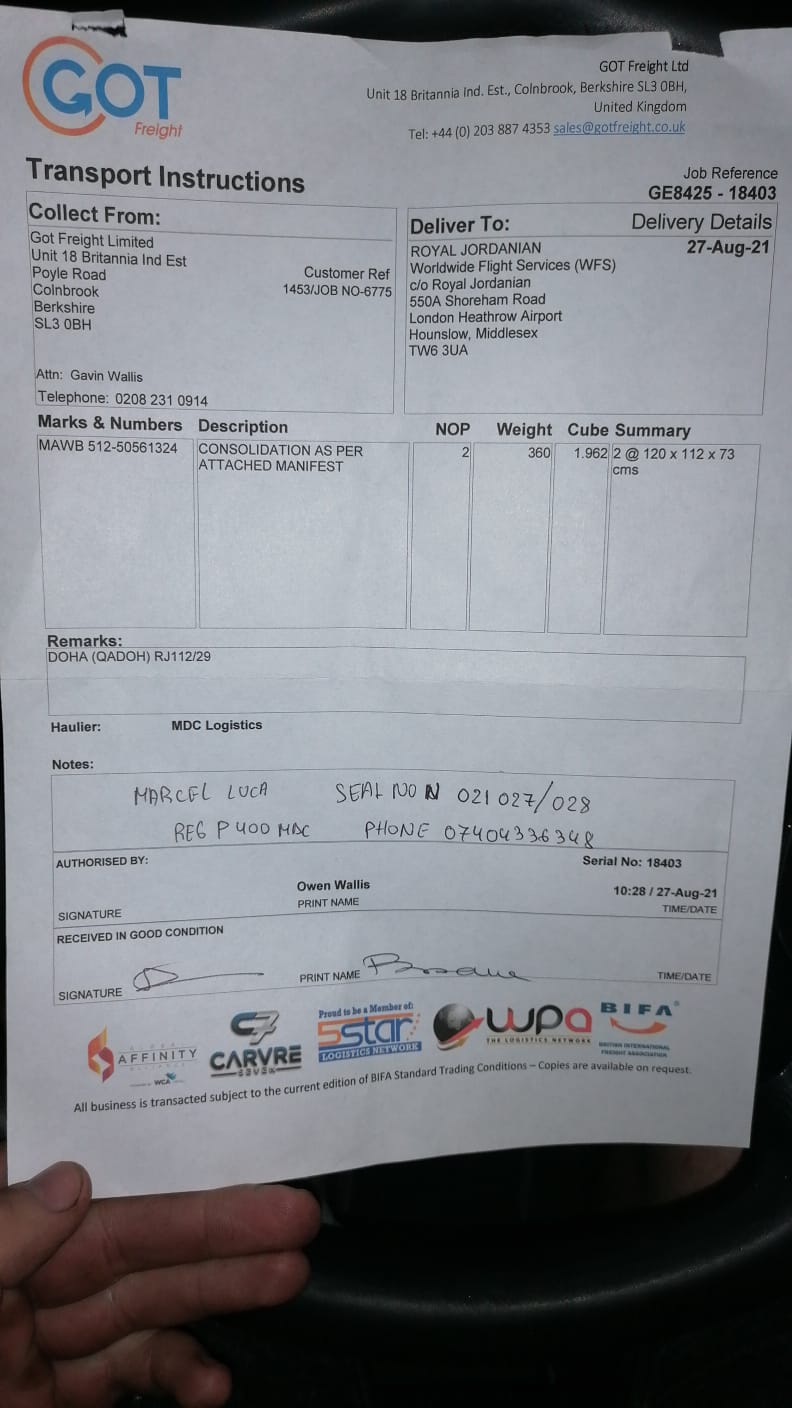 GOT
Freight
GOT Freight Ltd
Unit 18 Britannia Ind. Est., Colnbrook, Berkshire SL3 0BH,
United Kingdom
Tel: +44 (0) 203 887 4353 sales@gotfreight.co.uk
Transport Instructions
Job Reference
GE8425 - 18403
Collect From:
Got Freight Limited
Unit 18 Britannia Ind Est
Poyle Road
Colnbrook
Berkshire
SL3 0BH
Customer Ref
1453/JOB NO-6775
Attn: Gavin Wallis
Telephone: 0208 231 0914
Deliver To:
Delivery Details
27-Aug-21
ROYAL JORDANIAN
Worldwide Flight Services (WFS)
c/o Royal Jordanian
550A Shoreham Road
London Heathrow Airport
Hounslow, Middlesex
TW6 3UA
Marks & Numbers Description NOP Weight Cube Summary
MAWB 512-50561324 CONSOLIDATION AS PER 2 360 1.962 2 @ 120 x 112 x 73
ATTACHED MANIFEST cms
Remarks:
DOHA (QADOH) RJ112/29
Haulier: MDC Logistics
Notes:
MARCEL LUCA SEAL NO N 021027/028
REG P400 MDC PHONE 07404336348
AUTHORISED BY: Serial No: 18403
Owen Wallis 10:28 / 27-Aug-21
SIGNATURE PRINT NAME TIME/DATE
RECEIVED IN GOOD CONDITION
SIGNATURE PRINT NAME TIME/DATE
AFFINITY
WCA
CARVRE
SEVEN
Proud to be a Member of:
5star
LOGISTICS NETWORK
wpa
THE LOGISTICS NETWORK
BIFA
BRITISH INTERNATIONAL
FREIGHT ASSOCIATION
All business is transacted subject to the current edition of BIFA Standard Trading Conditions – Copies are available on request.